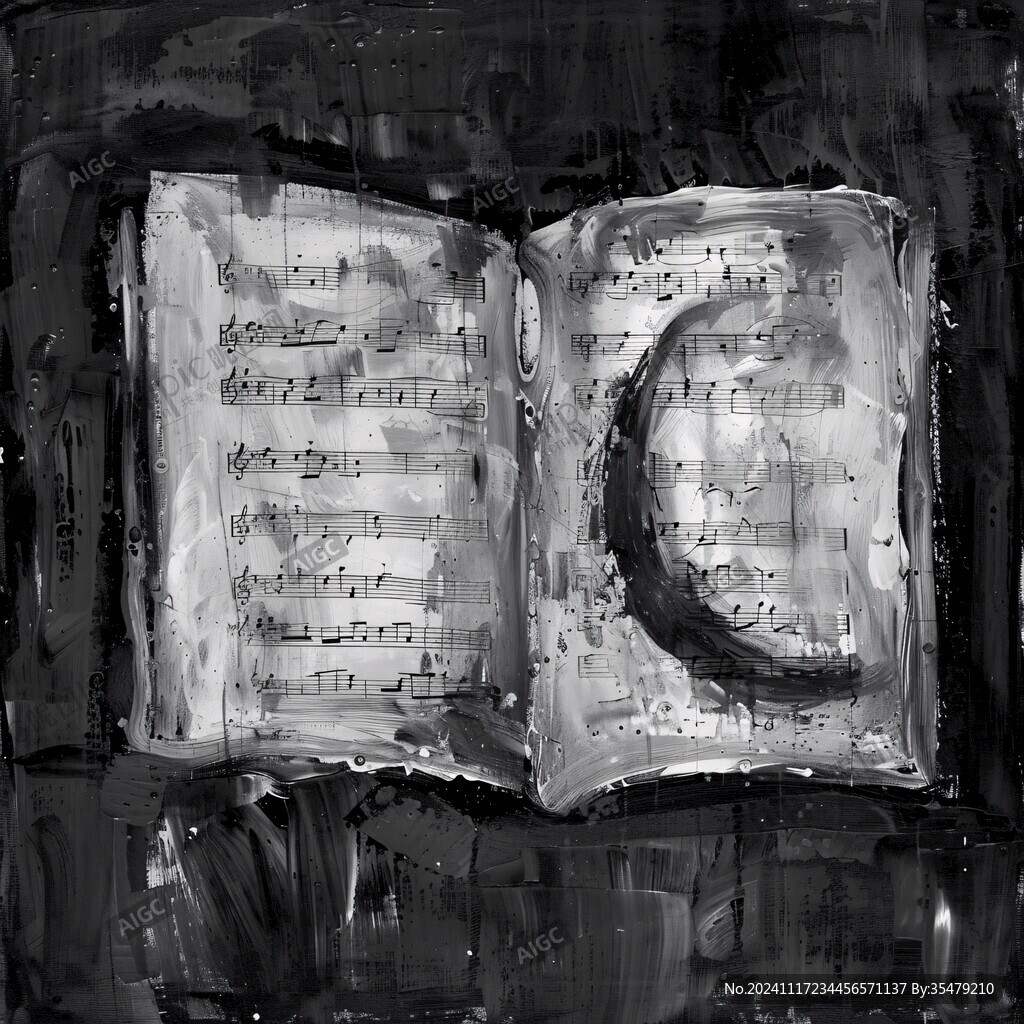 AIGC
AIGC
AIGC
AIGC
AIGC
No.20241117234456571137 By:35479210